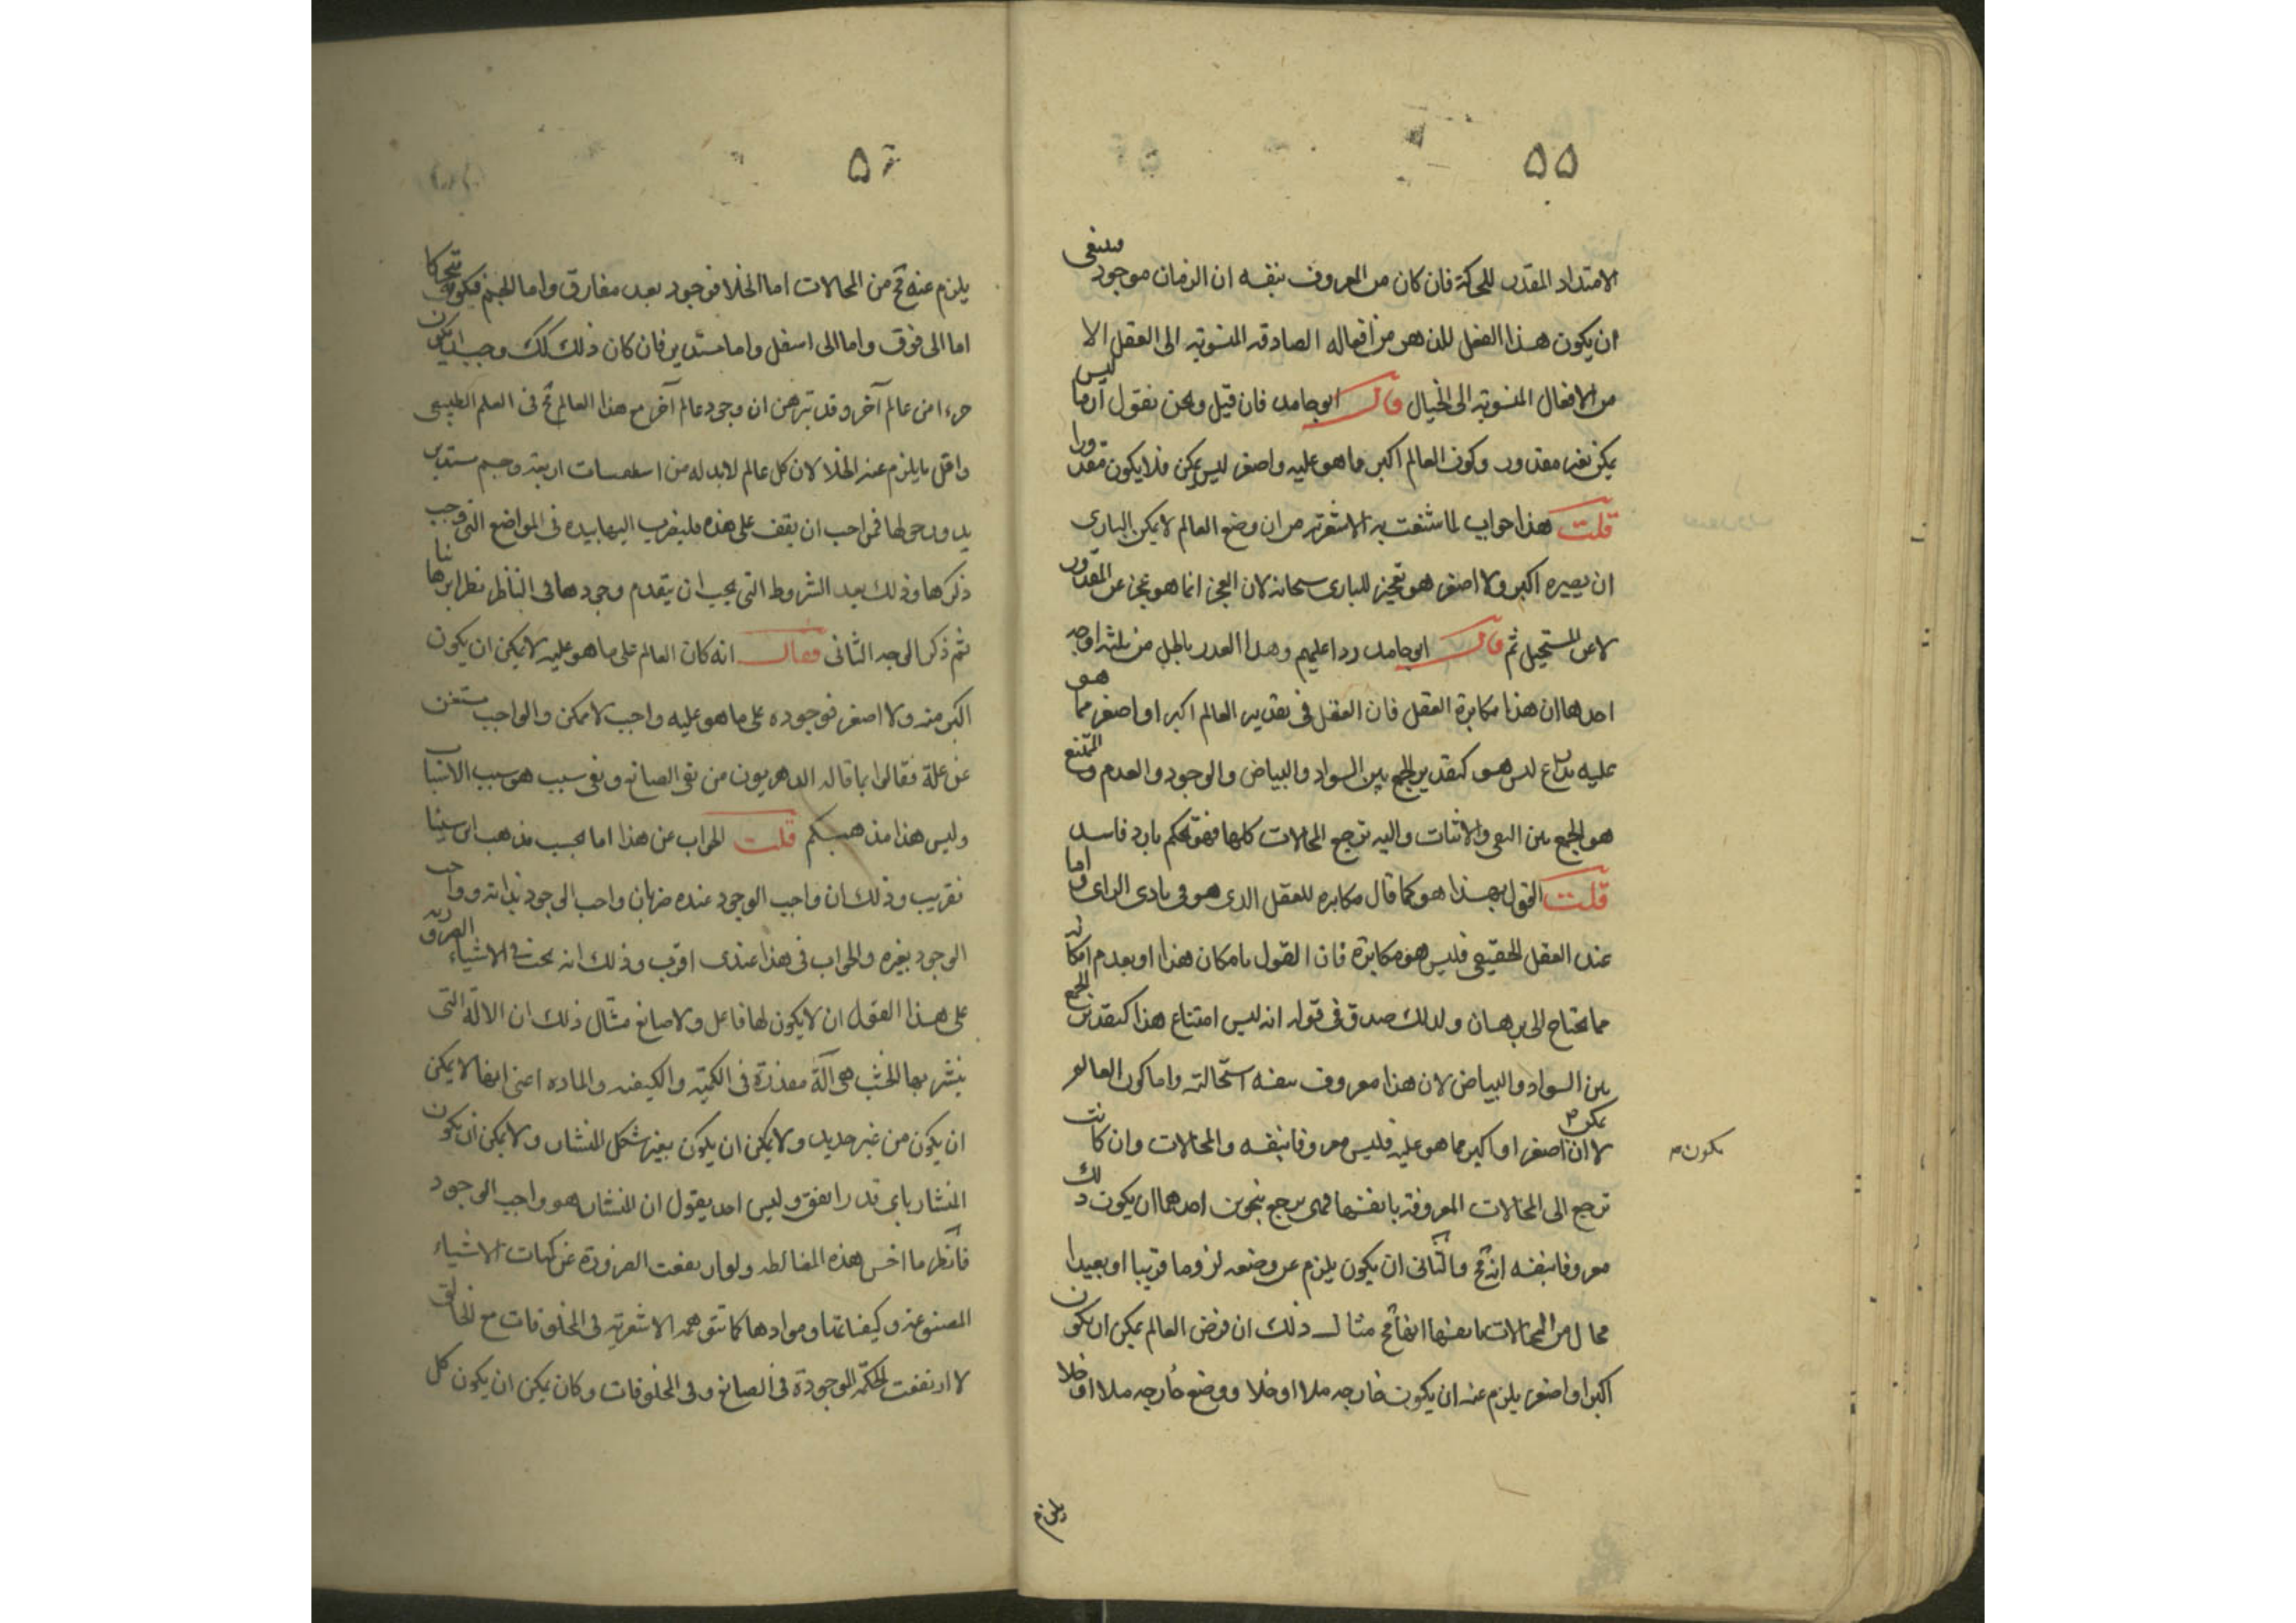 ٥٥
الامتداد المقدر للحركة فان كان من المعروف بنفسه ان الزمان موجود فينبغى
ان يكون هذا الفعل للذهن من افعاله الصادقه المنسوبة الى العقل لا
من الافعال المنسوبة الى الخيال قال ابو حامد فان قيل ونحن نقول ان ما ليس
يمكن فغير مقدور وكون العالم اكبر مما هو عليه واصغر ليس يمكن فلا يكون مقدورا
قلت هذا جواب لما شنعت به الاشعرية من ان وضع العالم لا يمكن البارى
ان يصيره اكبر ولا اصغر هو تعجيز للبارى سبحانه لان العجز انما هو عجز عن المقدور
لا عن المستحيل ثم قال ابو حامد ردا عليهم وهذا العذر باطل من ثلثه اوجه
احدها ان هذا مكابرة العقل فان العقل فى تقدير العالم اكبر او اصغر مما هو
عليه بذراع ليس هو كتقدير الجمع بين السواد والبياض والوجود والعدم والممتنع
هو الجمع بين النفى والاثبات واليه ترجع المحالات كلها فهو تحكم بارد فاسد
قلت القول بهذا هو كما قال مكابره للعقل الذى هو فى بادى الراى واما
عند العقل الحقيقى فليس هو مكابرة فان القول بامكان هذا او بعدم امكانه
مما يحتاج الى برهان ولذلك صدق فى قوله انه ليس امتناع هذا كتقدير الجمع
بين السواد والبياض لان هذا معروف بنفسه استحالته واما كون العالم
لا يمكن ان اصغر او اكبر مما هو عليه فليس معروفا بنفسه والمحالات وان كانت
يكون م
ترجع الى المحالات المعروفة بانفسها فهى ترجع بنحوين احدهما ان يكون ذلك
معروفا بنفسه انه مح والثانى ان يكون يلزم عن وضعه لزوما قريبا او بعيدا
محال من المحالات بانفسها انها مح مثال ذلك ان فرض العالم يمكن ان يكون
اكبر او اصغر يلزم عنه ان يكون خارجه ملا او خلا ووضع خارجه ملا او خلا
يلزم
يلزم عنه مح من المحالات اما الخلا فوجود بعد مفارق واما الجسم فيكون متحركا
اما الى فوق واما الى اسفل واما مستديرا فان كان ذلك كك وجب ان يكون
جزءا من عالم آخر وقد تبرهن ان وجود عالم آخر مع هذا العالم مح فى العلم الطبيعى
واقل ما يلزم عنه الخلا لان كل عالم لابد له من اسطقسات اربعة وجسم مستدير
يدور حولها فمن احب ان يقف على هذه فليضرب اليها بيده فى المواضع التى وجب
ذكرها وذلك بعد الشروط التى يجب ان يتقدم وجودها فى الناظر نظرا برهانيا
ثم ذكر الوجه الثانى فقال انه كان العالم على ما هو عليه لا يمكن ان يكون
اكبر منه ولا اصغر فوجوده على ما هو عليه واجب لا ممكن والواجب مستغن
عن علة فقالوا بما قاله الدهريون من نفى الصانع ونفى سبب هو سبب الاسباب
وليس هذا مذهبكم قلت الجواب عن هذا اما بحسب مذهب ابن سينا
فقريب وذلك ان واجب الوجود عنده ضربان واجب الوجود بذاته وواجب
الوجود بغيره والجواب فى هذا عندى اقرب وذلك انه يجب فى الاشياء الضرورية
على هذا القول ان لا يكون لها فاعل ولا صانع مثال ذلك ان الآلة التى
ينشر بها الخشب هى آلة مقدرة فى الكمية والكيفيه والماده اعنى انها لا يمكن
ان يكون من غير حديد ولا يمكن ان يكون بغير شكل المنشار ولا يمكن ان يكون
المنشار باى قدر اتفق وليس احد يقول ان المنشار هو واجب الوجود
فانظر ما اخس هذه المغالطه ولو ارتفعت الضرورة عن كميات الاشياء
المصنوعة وكيفياتها وموادها كما تتوهمه الاشعرية فى المخلوقات مع الخالق
لا ارتفعت الحكمة الموجودة فى الصانع وفى المخلوقات وكان يمكن ان يكون كل